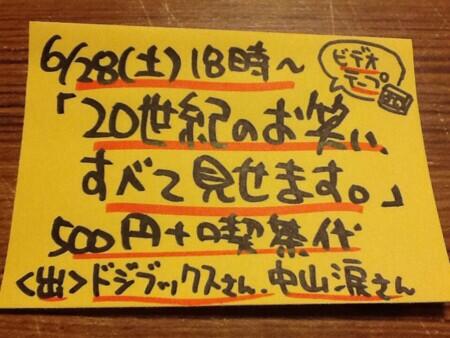 6/28(土)18時〜
ビデオ
テープ
「20世紀のお笑い、
すべて見せます。」
500円+喫茶代
<出>ドジブックスさん、中山涙さん